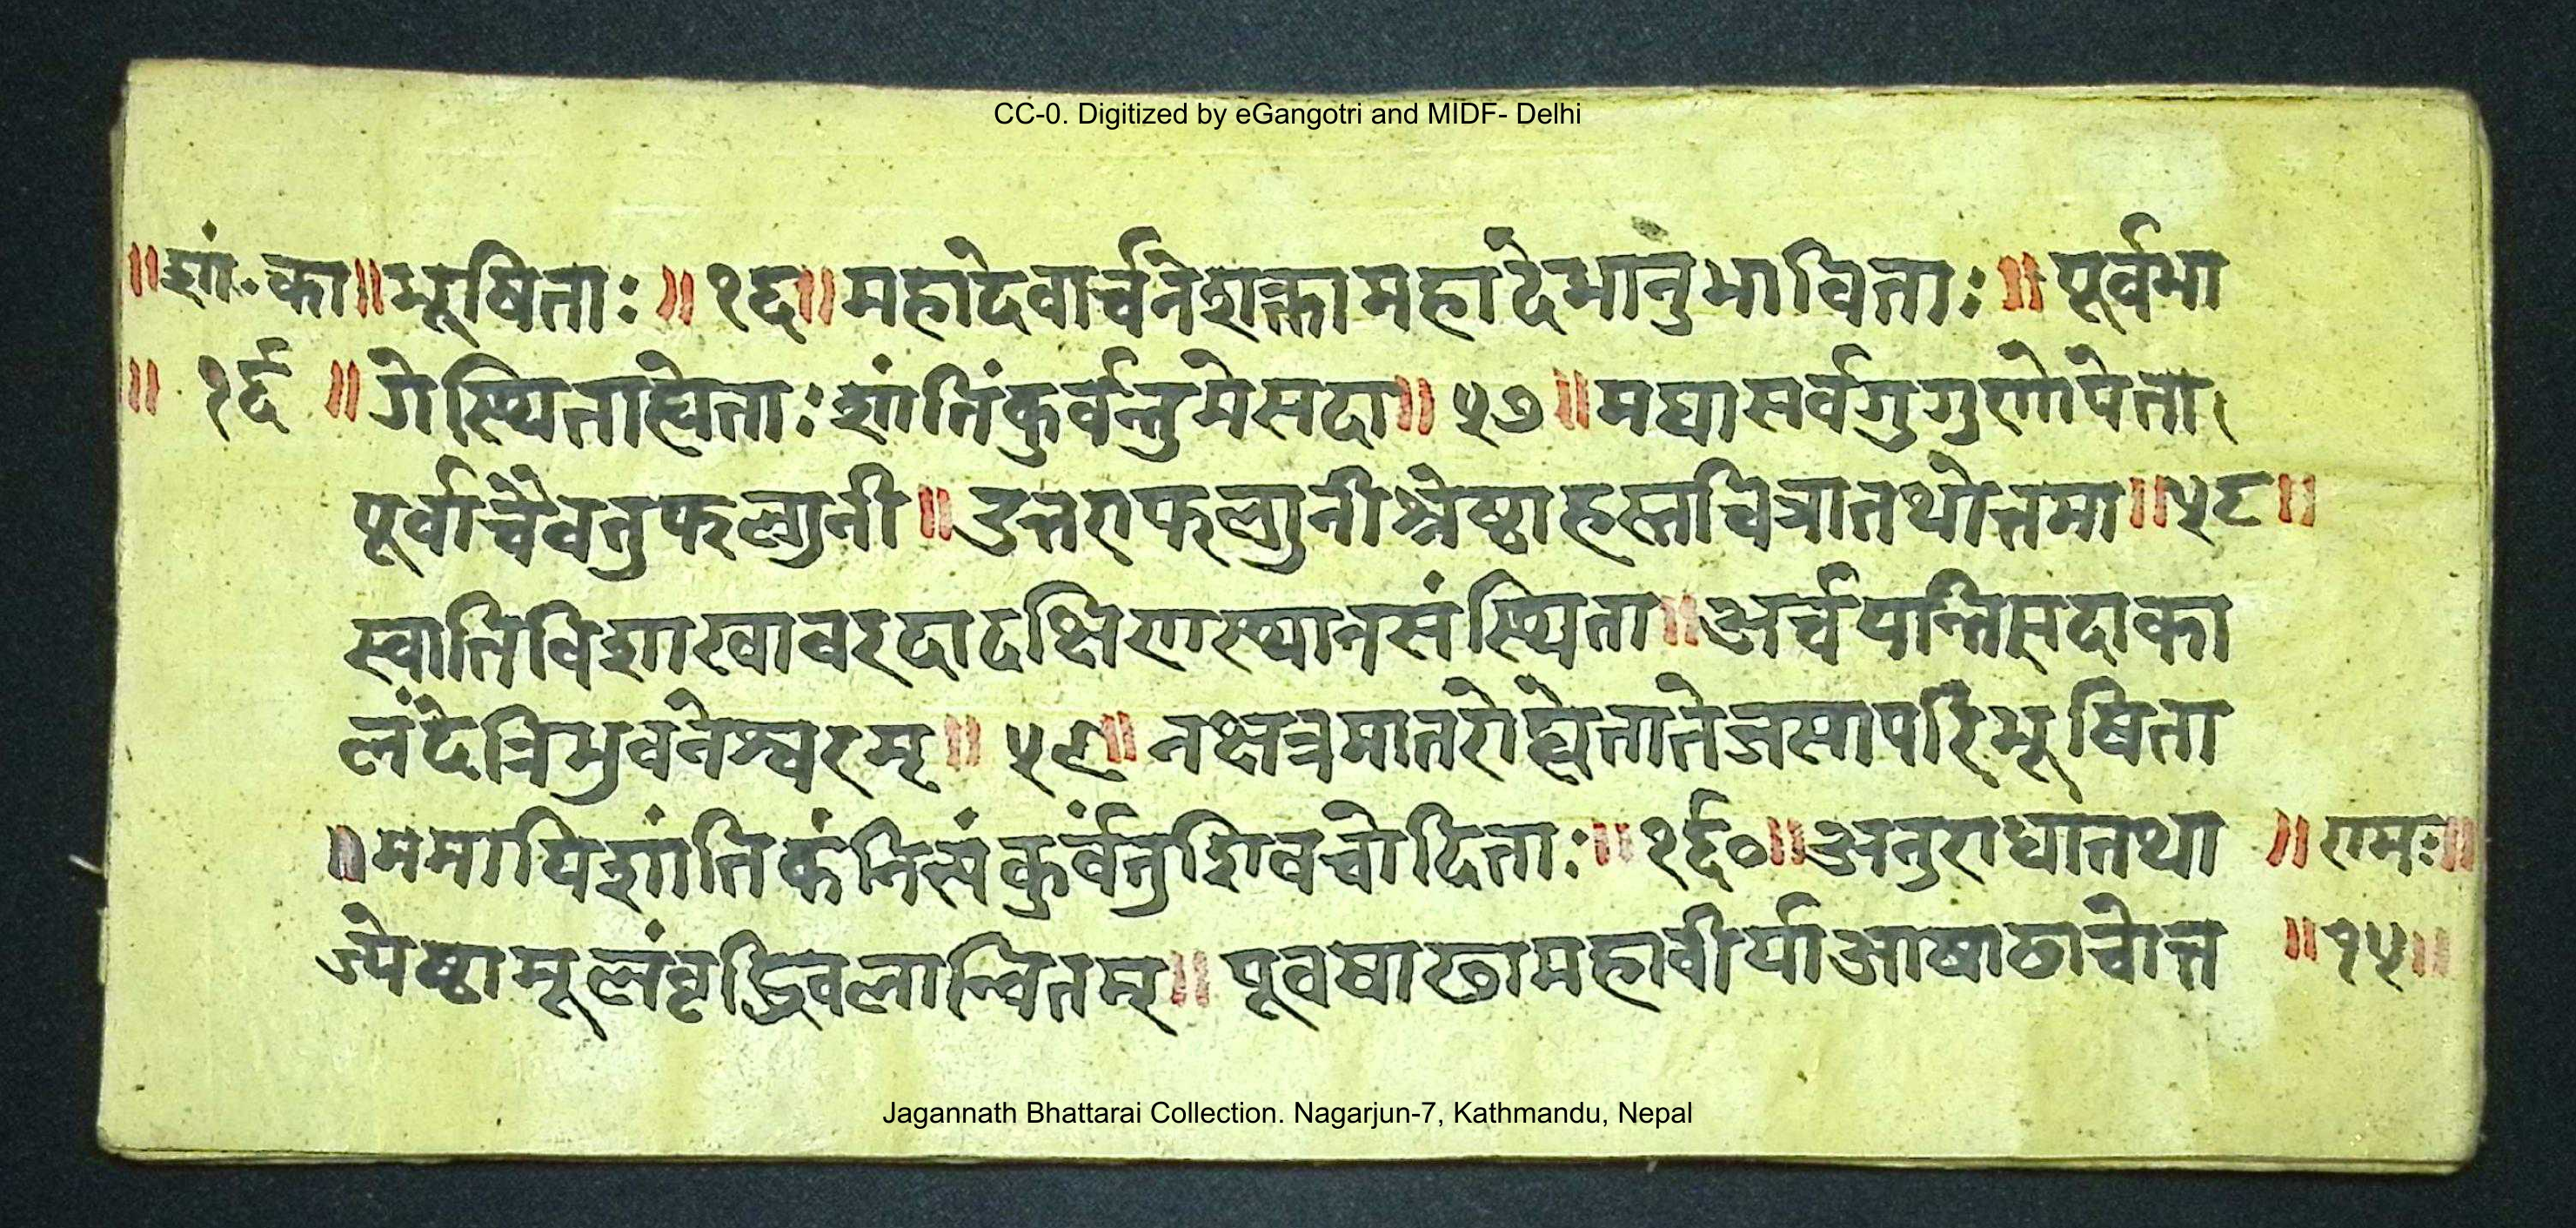 CC-0. Digitized by eGangotri and MIDF- Delhi
॥शां॰का॥भूषिताः॥१६॥महादेवार्चनेशक्तामहादेभानुभाविताः॥पूर्वभा
॥ १६ ॥गेस्थिताह्येताःशांतिंकुर्वन्तुमेसदा॥५७॥मघासर्वगुगुणोपेता।
पूर्वाचैवतुफल्गुनी॥उत्तराफल्गुनीश्रेष्ठाहस्तचित्रातथोत्तमा॥५८॥
स्वातिविशाखावरदादक्षिणस्थानसंस्थिता॥अर्चयन्तिसदाका
लंदेत्रिभुवनेश्वरम्॥५९॥नक्षत्रमातरोह्येतातेजसापरिभूषिता
॥ममापिशांतिकंनित्यंकुर्वंतुशिवचोदिताः॥१६०॥अनुराधातथा ॥रामः॥
ज्येष्ठामूलंवृद्धिवलान्वितम्॥पूवषाढामहावीर्याआषाढाचोत्त ॥१५॥
Jagannath Bhattarai Collection. Nagarjun-7, Kathmandu, Nepal